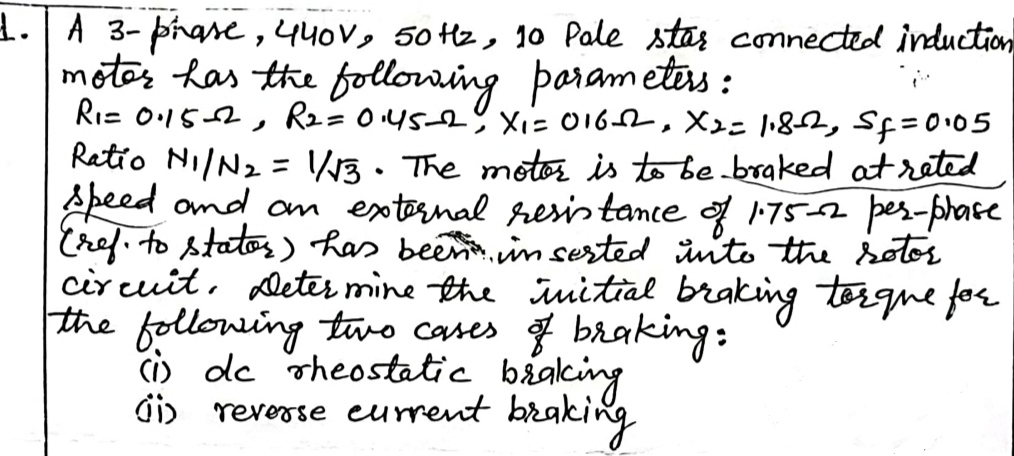 1. A 3-phase, 440V, 50 Hz, 10 Pole star connected induction
motor has the following parameters:
R1= 0.15Ω, R2= 0.45Ω, X1= 016Ω, X2= 1.8Ω, Sf=0.05
Ratio N1/N2 = 1/√3. The motor is to be braked at rated
speed and an external resistance of 1.75Ω per-phase
(ref. to stator) has been inserted into the rotor
circuit. Determine the initial braking torque for
the following two cases of braking:
(i) dc rheostatic braking
(ii) reverse current braking